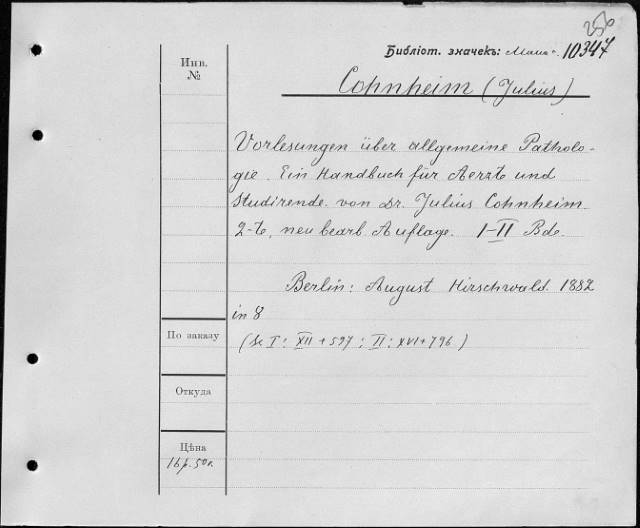 250
Библіот. значекъ: 10347
Инв.
№
Cohnheim (Julius)
Vorlesungen über allgemeine Patholo-
gie. Ein Handbuch für Aerzte und
Studirende von Dr. Julius Cohnheim.
2-te, neu bearb. Auflage. I-II Bde.
Berlin: August Hirschwald. 1882
in 8
По заказу
I: XII + 597; II: XVI + 796)
Откуда
Цѣна
16р. 50к.